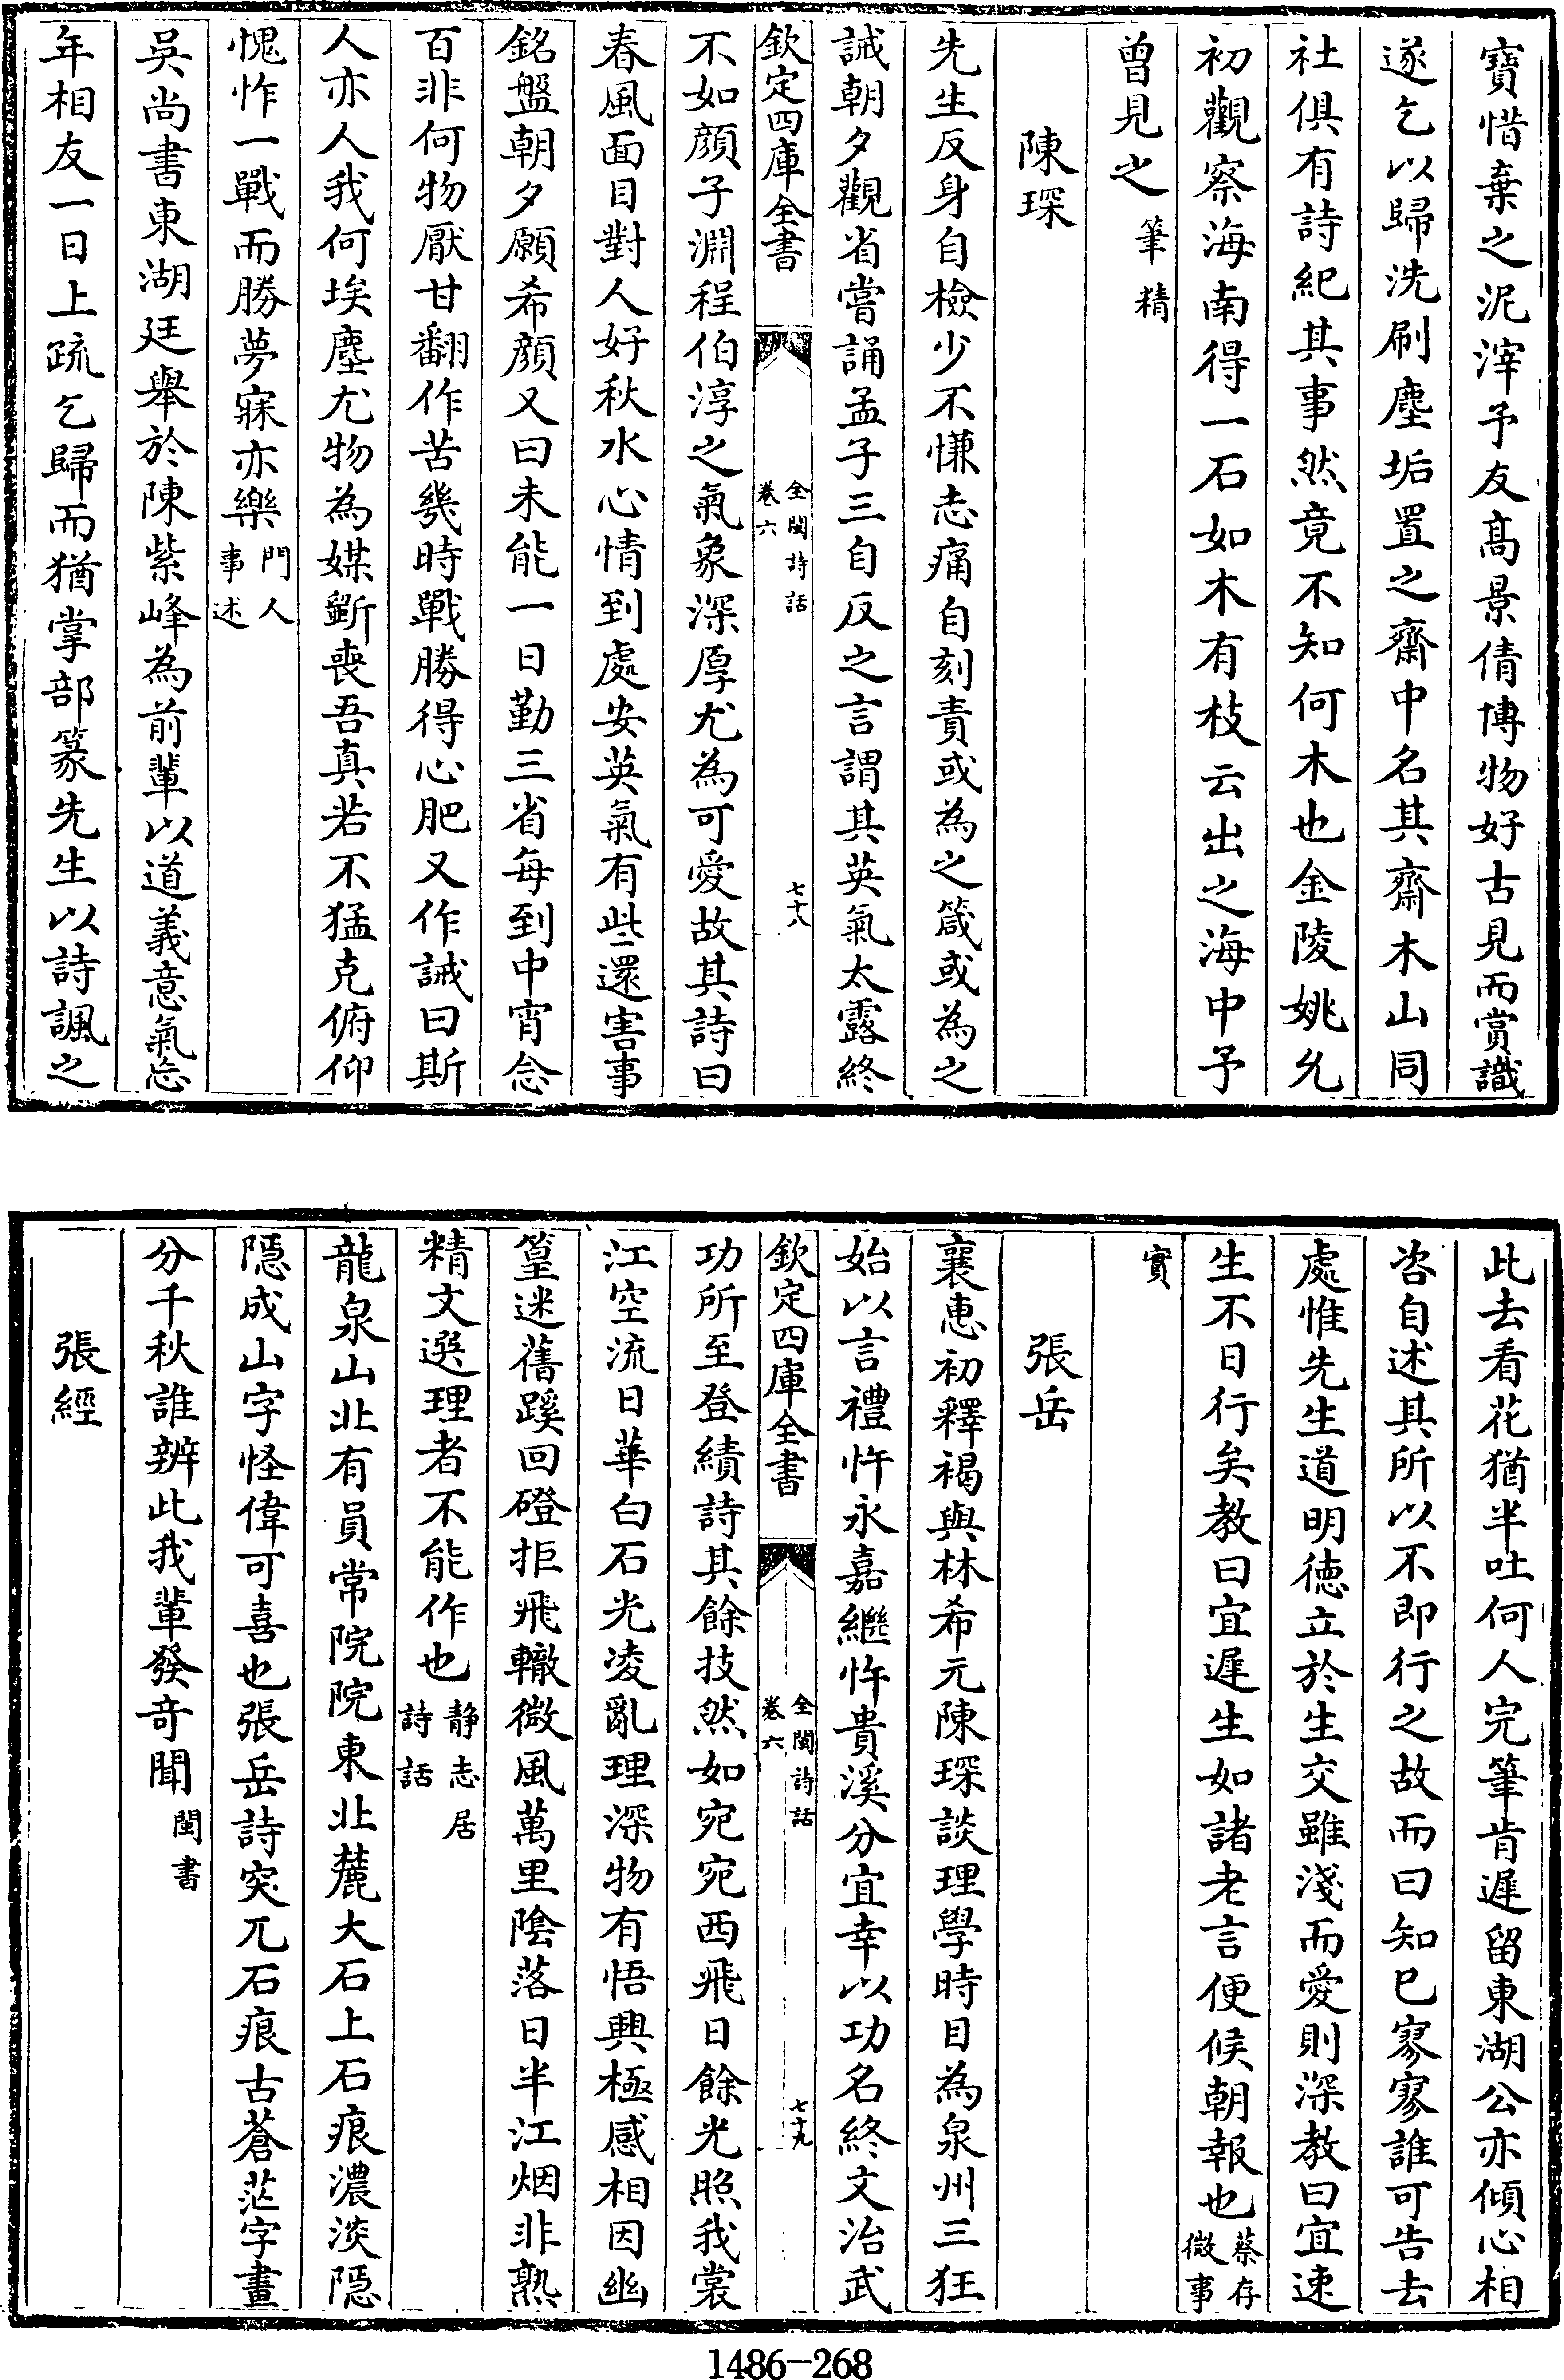 寶惜棄之泥滓予友髙景倩博物好古見而賞識
遂乞以歸洗刷塵垢置之齋中名其齋木山同
社俱有詩紀其事然竟不知何木也金陵姚允
初觀察海南得一石如木有枝云出之海中予
曾見之筆精
陳琛
先生反身自檢少不慊志痛自刻責或為之箴或為之
誡朝夕觀省嘗誦孟子三自反之言謂其英氣太露終
欽定四庫全書
全閩詩話
卷六
七十八
不如顔子淵程伯淳之氣象深厚尤為可愛故其詩曰
春風面目對人好秋水心情到處安英氣有些還害事
銘盤朝夕願希顔又曰未能一日勤三省每到中宵念
百非何物厭甘翻作苦幾時戰勝得心肥又作誡曰斯
人亦人我何埃塵尤物為媒斵喪吾真若不猛克俯仰
愧怍一戰而勝夢寐亦樂門人
事述
吳尚書東湖廷舉於陳紫峰為前輩以道義意氣忘
年相友一日上疏乞歸而猶掌部篆先生以詩諷之
此去看花猶半吐何人完筆肯遲留東湖公亦傾心相
咨自述其所以不即行之故而曰知已寥寥誰可告去
處惟先生道明徳立於生交雖淺而愛則深教曰宜速
生不日行矣教曰宜遲生如諸老言便候朝報也蔡存
微事
實
張岳
襄惠初釋褐與林希元陳琛談理學時目為泉州三狂
始以言禮忤永嘉繼忤貴溪分宜幸以功名終文治武
欽定四庫全書
全閩詩話
卷六
七十九
功所至登績詩其餘技然如宛宛西飛日餘光照我裳
江空流日華白石光凌亂理深物有悟興極感相因幽
篁迷舊蹊回磴拒飛轍微風萬里陰落日半江烟非熟
精文選理者不能作也静志居
詩話
龍泉山北有員常院院東北麓大石上石痕濃淡隠
隠成山字怪偉可喜也張岳詩突兀石痕古蒼茫字畫
分千秋誰辨此我輩發竒聞閩書
張經
1486-268